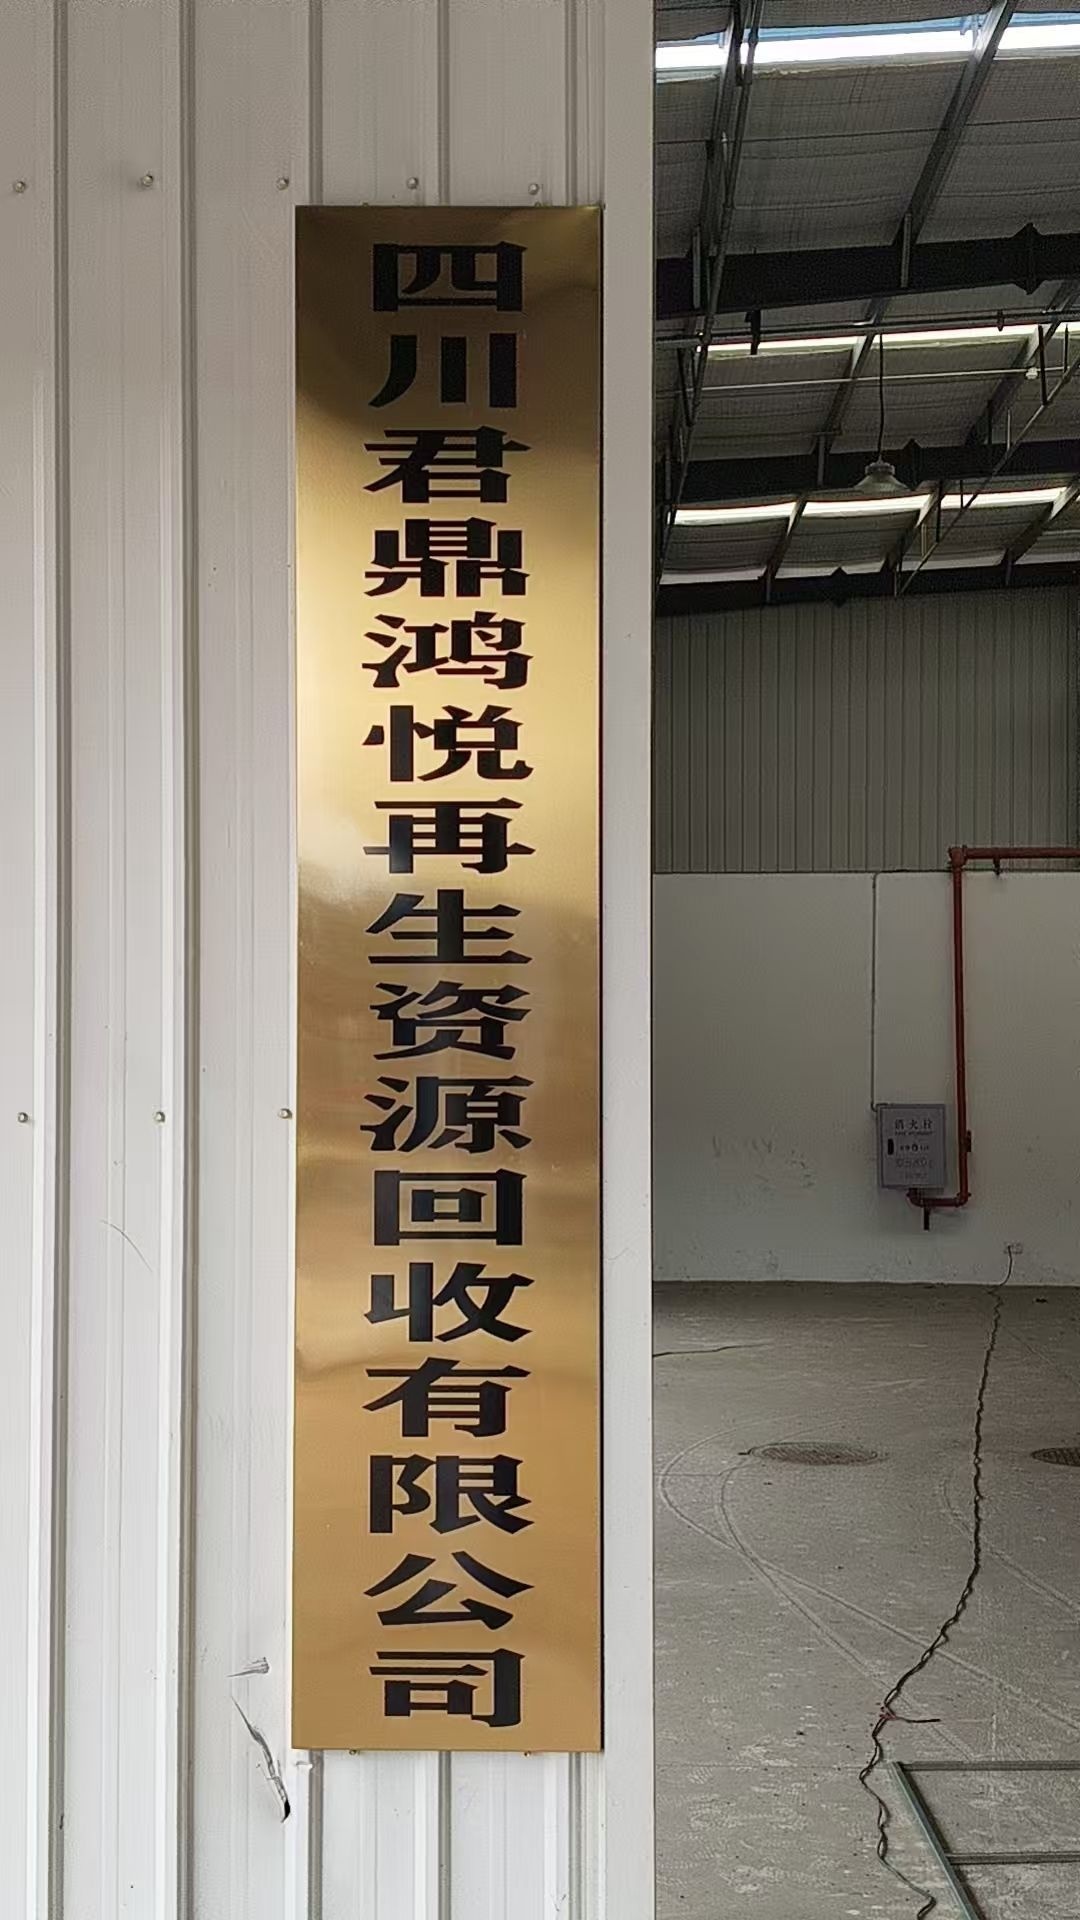 四川君鼎鸿悦再生资源回收有限公司
消火栓